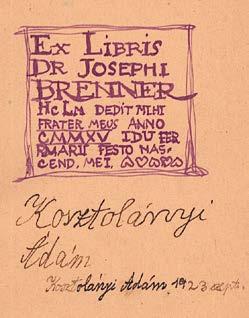 EX LIBRIS
DR JOSEPHI
BRENNER
HC LM DEDIT MIHI
FRATER MEUS ANNO
CMMXXV IDU FER
RMARII FESTO NAS-
CEND. MEI.
Kosztolányi
Ádám
Kosztolányi Ádám. 1923 szept.